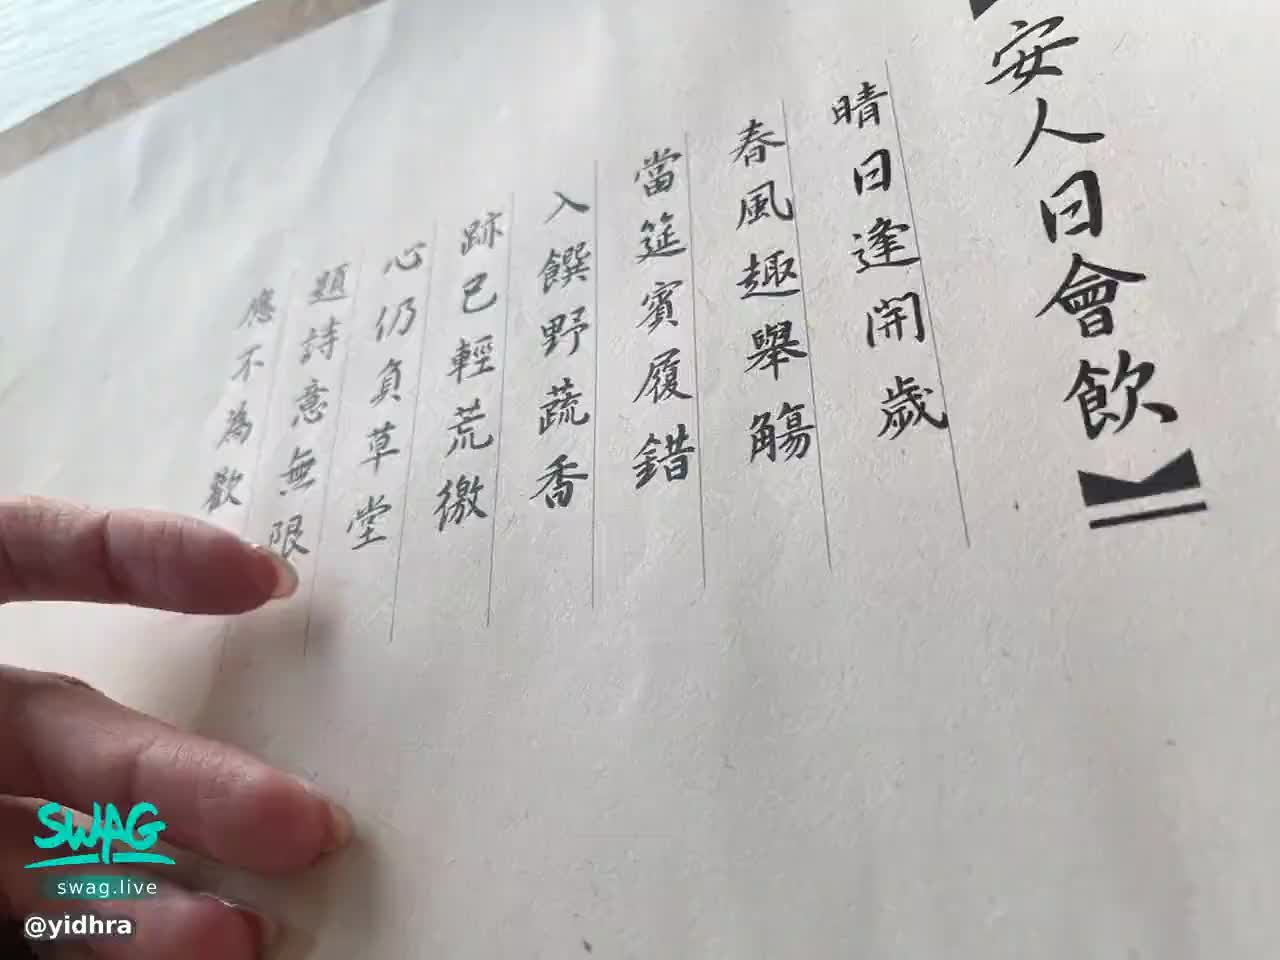 安人日會飲
晴日逢開歲
春風趣舉觴
當筵賓履錯
入饌野蔬香
跡已輕荒徼
心仍負草堂
題詩意無限
應不為歡
SWAG
swag.live
@yidhra